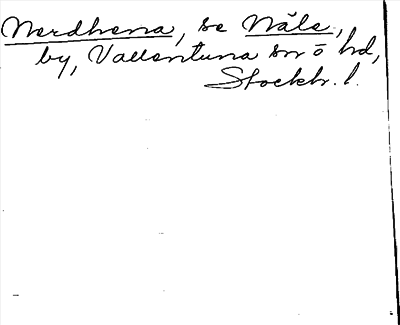 Nerdhena, se Nåle,
by, Vallentuna sn ō hd,
Stockh. l.